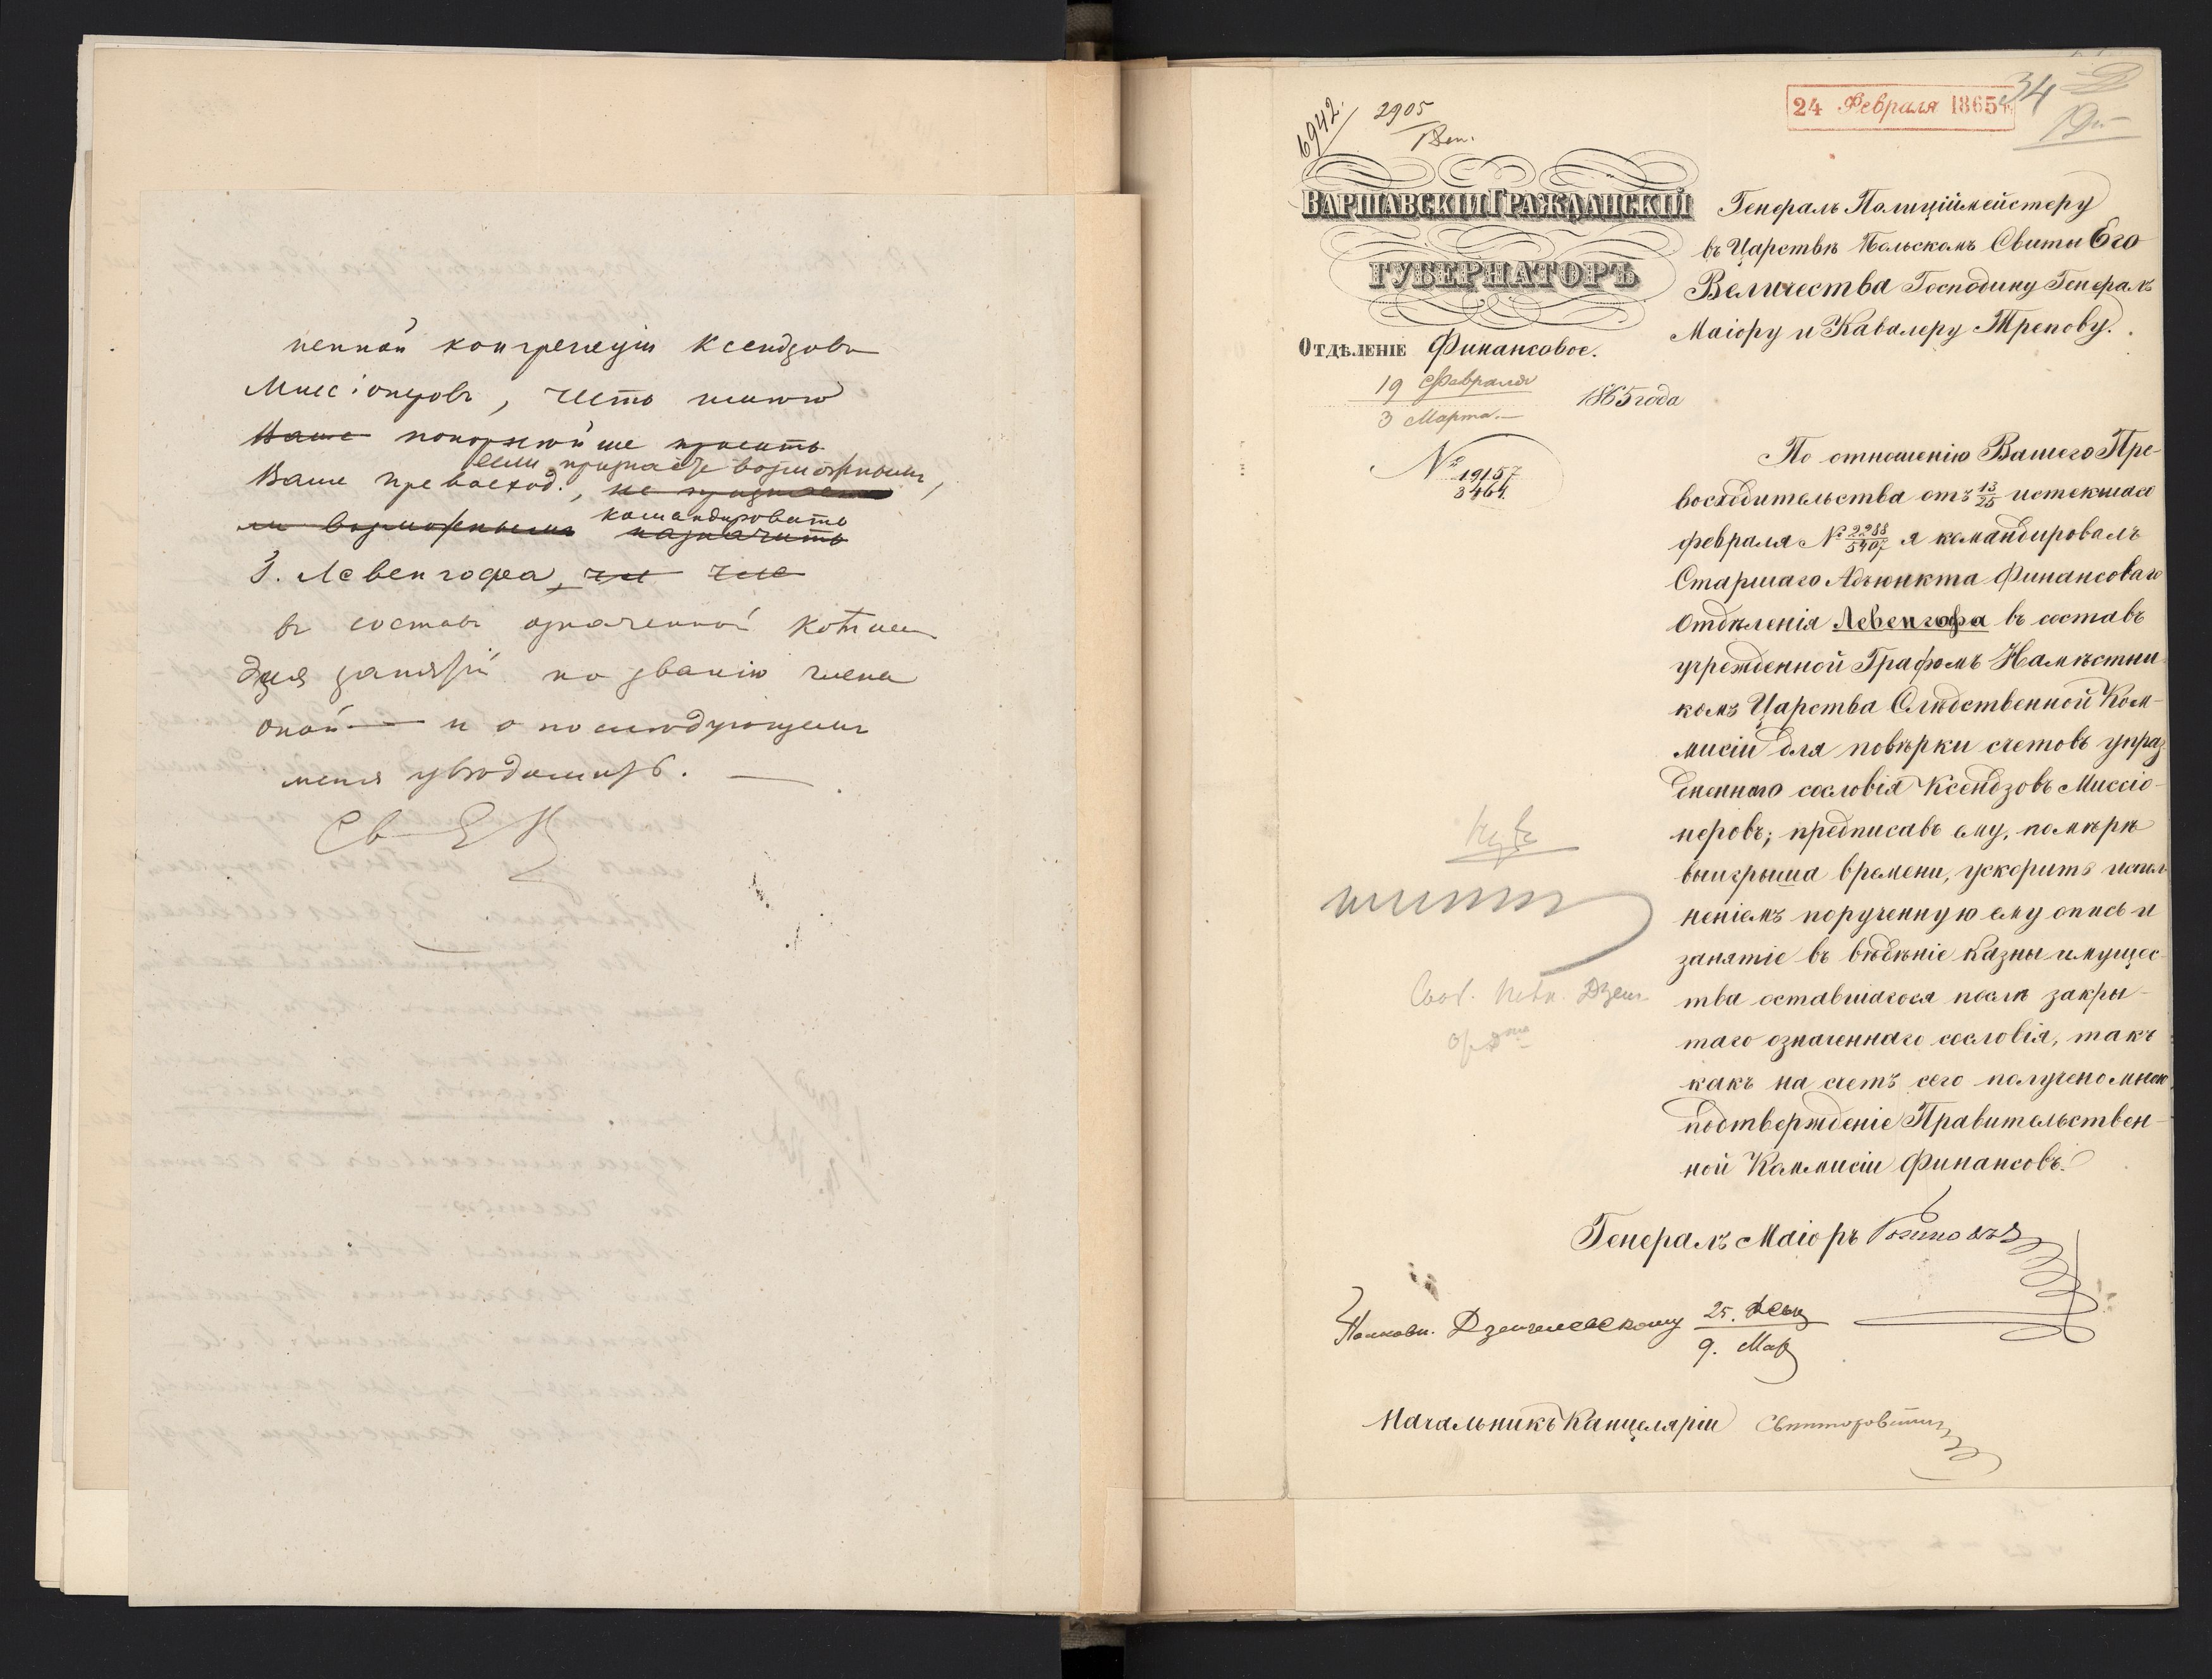 ненной конгрегации Ксендзовъ
Миссіонеровъ, честь имѣю
Ваше покорнѣйше просить
если признаете возможнымъ,
Ваше превосход., не признаете
командировать
ли возможнымъ назначить
Г. Левенгофа,
въ составъ означенной Комис
для занятій по званію члена
оной и о послѣдующемъ
меня увѣдомить.
6942
2905
24 Февраля 1865
34
ВАРШАВСКІЙ ГРАЖДАНСКІЙ
ГУБЕРНАТОРЪ
ОТДѢЛЕНІЕ Финансовое.
19 Февраля
3 Марта
1865 года
№ 19157
3464
Генералъ Полиціймейстеру
въ Царствѣ Польскомъ Свиты Его
Величества Господину Генералъ
Маіору и Кавалеру Трепову.
По отношенію Вашего Пре-
восходительства отъ 13/25 истекшаго
февраля № 2288/5407 я командировалъ
Старшаго Адъюнкта Финансоваго
Отдѣленія Левенгофа въ составъ
учрежденной Графомъ Намѣстни-
комъ Царства Слѣдственной Ком-
мисіи для повѣрки счетовъ упраз
дненнаго сословія Ксендзовъ Миссіо-
неровъ; предписавъ ему, по мѣрѣ
выигрыша времени, ускорить испол
неніемъ порученную ему опись и
занятіе въ вѣдѣніе казны имущес-
тва оставшагося послѣ закры-
таго означеннаго сословія, такъ
какъ на счетъ сего получено мною
подтвержденіе Правительствен-
ной Коммисіи Финансовъ.
Генералъ Маіоръ
Полковн. 25. Февр
9. Мар
Начальникъ Канцеляріи